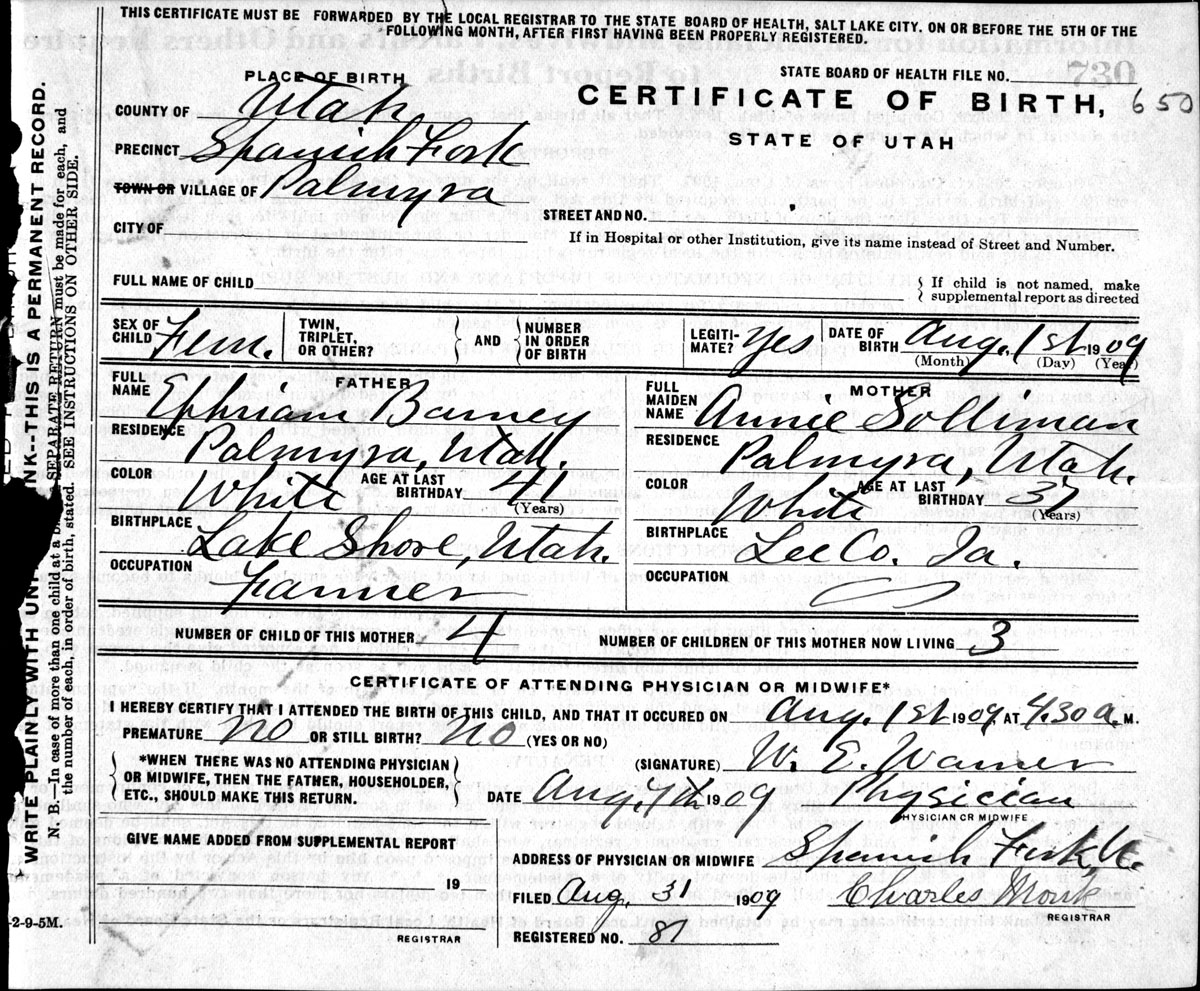 THIS CERTIFICATE MUST BE FORWARDED BY THE LOCAL REGISTRAR TO THE STATE BOARD OF HEALTH, SALT LAKE CITY. ON OR BEFORE THE 5TH OF THE
FOLLOWING MONTH, AFTER FIRST HAVING BEEN PROPERLY REGISTERED.
STATE BOARD OF HEALTH FILE NO.
PLACE OF BIRTH
CERTIFICATE OF BIRTH, 650
STATE OF UTAH
COUNTY OF Utah
PRECINCT Spanish Fork
TOWN OR VILLAGE OF Palmyra
STREET AND NO.
CITY OF
If in Hospital or other Institution, give its name instead of Street and Number.
FULL NAME OF CHILD
{ If child is not named, make
supplemental report as directed
SEX OF CHILD Fem.
TWIN, TRIPLET, OR OTHER?
AND
NUMBER IN ORDER OF BIRTH
LEGITI-MATE? Yes
DATE OF BIRTH Aug. 1st 1909
(Month) (Day) (Year)
FATHER
FULL NAME Ephriam Barney
RESIDENCE Palmyra, Utah.
COLOR White AGE AT LAST BIRTHDAY 41
(Years)
BIRTHPLACE Lake Shore, Utah.
OCCUPATION Farmer
MOTHER
FULL MAIDEN NAME Annie Solliman
RESIDENCE Palmyra, Utah.
COLOR White AGE AT LAST BIRTHDAY 37
(Years)
BIRTHPLACE Lee Co. Ia.
OCCUPATION
NUMBER OF CHILD OF THIS MOTHER 4 NUMBER OF CHILDREN OF THIS MOTHER NOW LIVING 3
CERTIFICATE OF ATTENDING PHYSICIAN OR MIDWIFE*
I HEREBY CERTIFY THAT I ATTENDED THE BIRTH OF THIS CHILD, AND THAT IT OCCURED ON Aug. 1st 1909 AT 4.30 a. M.
PREMATURE No OR STILL BIRTH? No (YES OR NO)
*WHEN THERE WAS NO ATTENDING PHYSICIAN
OR MIDWIFE, THEN THE FATHER, HOUSEHOLDER,
ETC., SHOULD MAKE THIS RETURN.
(SIGNATURE) W. E. Warner
DATE Aug. 1909 Physician
PHYSICIAN OR MIDWIFE
GIVE NAME ADDED FROM SUPPLEMENTAL REPORT
19
REGISTRAR
ADDRESS OF PHYSICIAN OR MIDWIFE Spanish Fork, Ut.
FILED Aug. 31 1909 Charles Monk
REGISTRAR
REGISTERED NO. 81
WRITE PLAINLY WITH UN INK--THIS IS A PERMANENT RECORD.
N. B.—In case of more than one child at a SEPARATE RETURN must be made for each, and
the number of each, in order of birth, stated. SEE INSTRUCTIONS ON OTHER SIDE.
-2-9-5M.